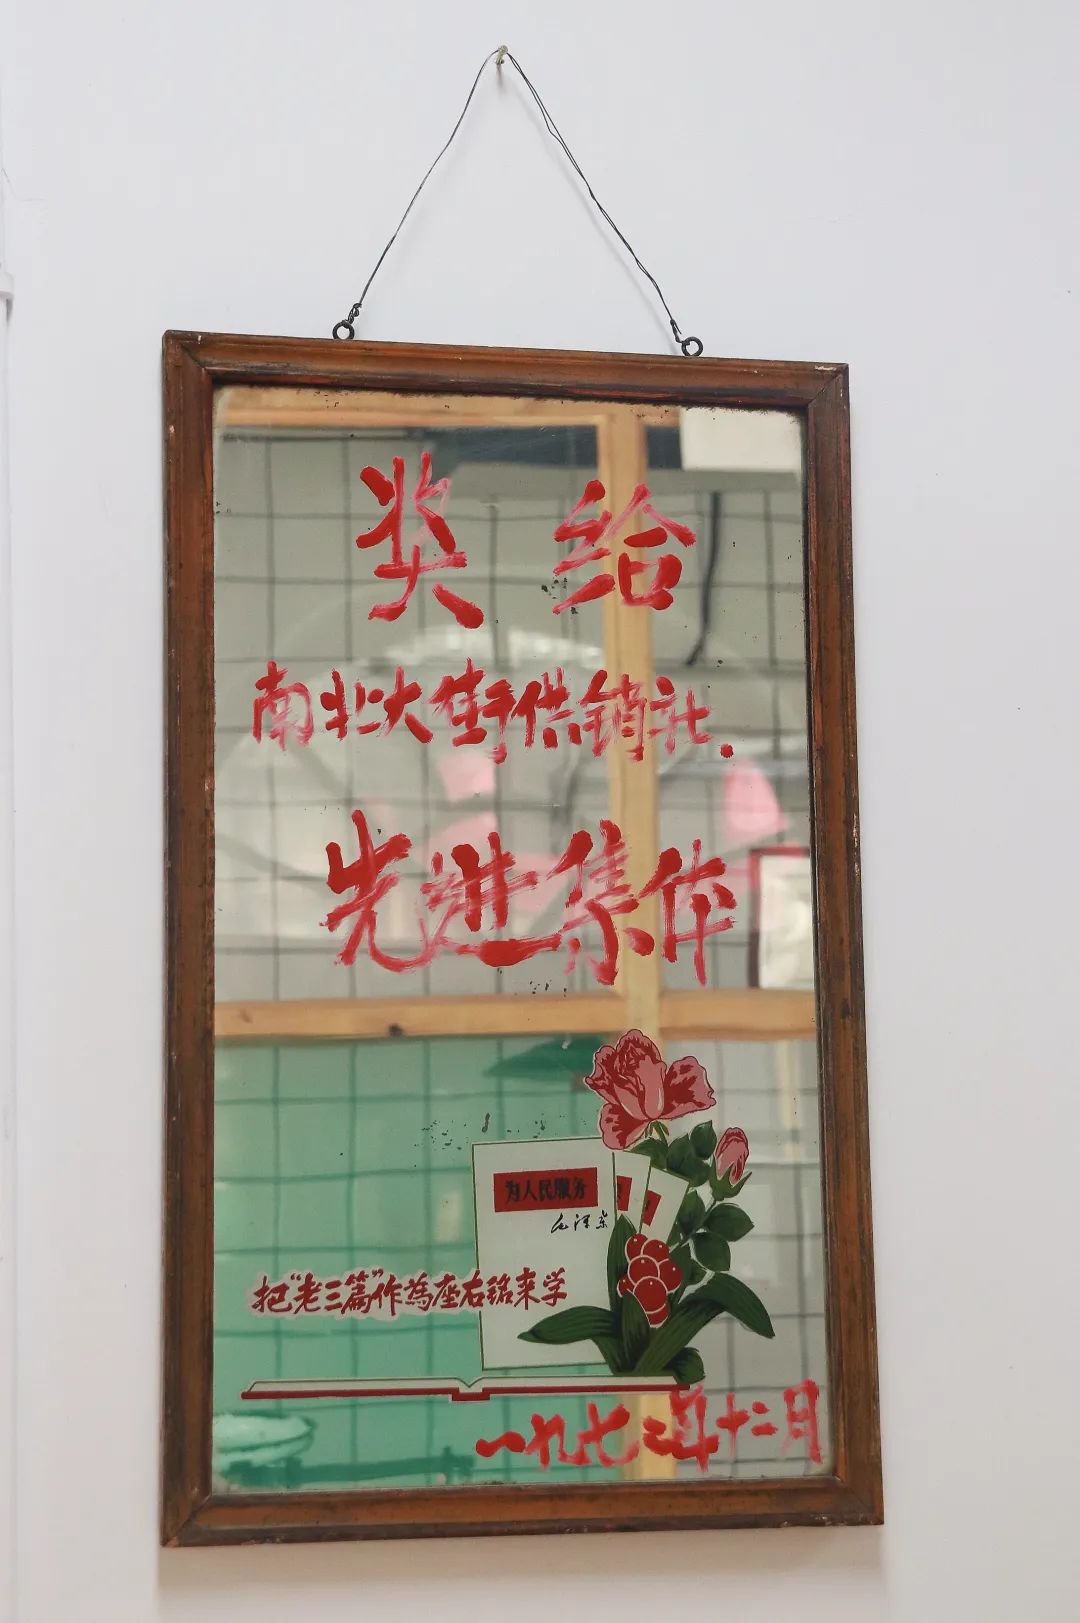 奖给
南北大街供销社.
先进集体
为人民服务
毛泽东
把“老三篇”作為座右铭来学
一九七二年十二月